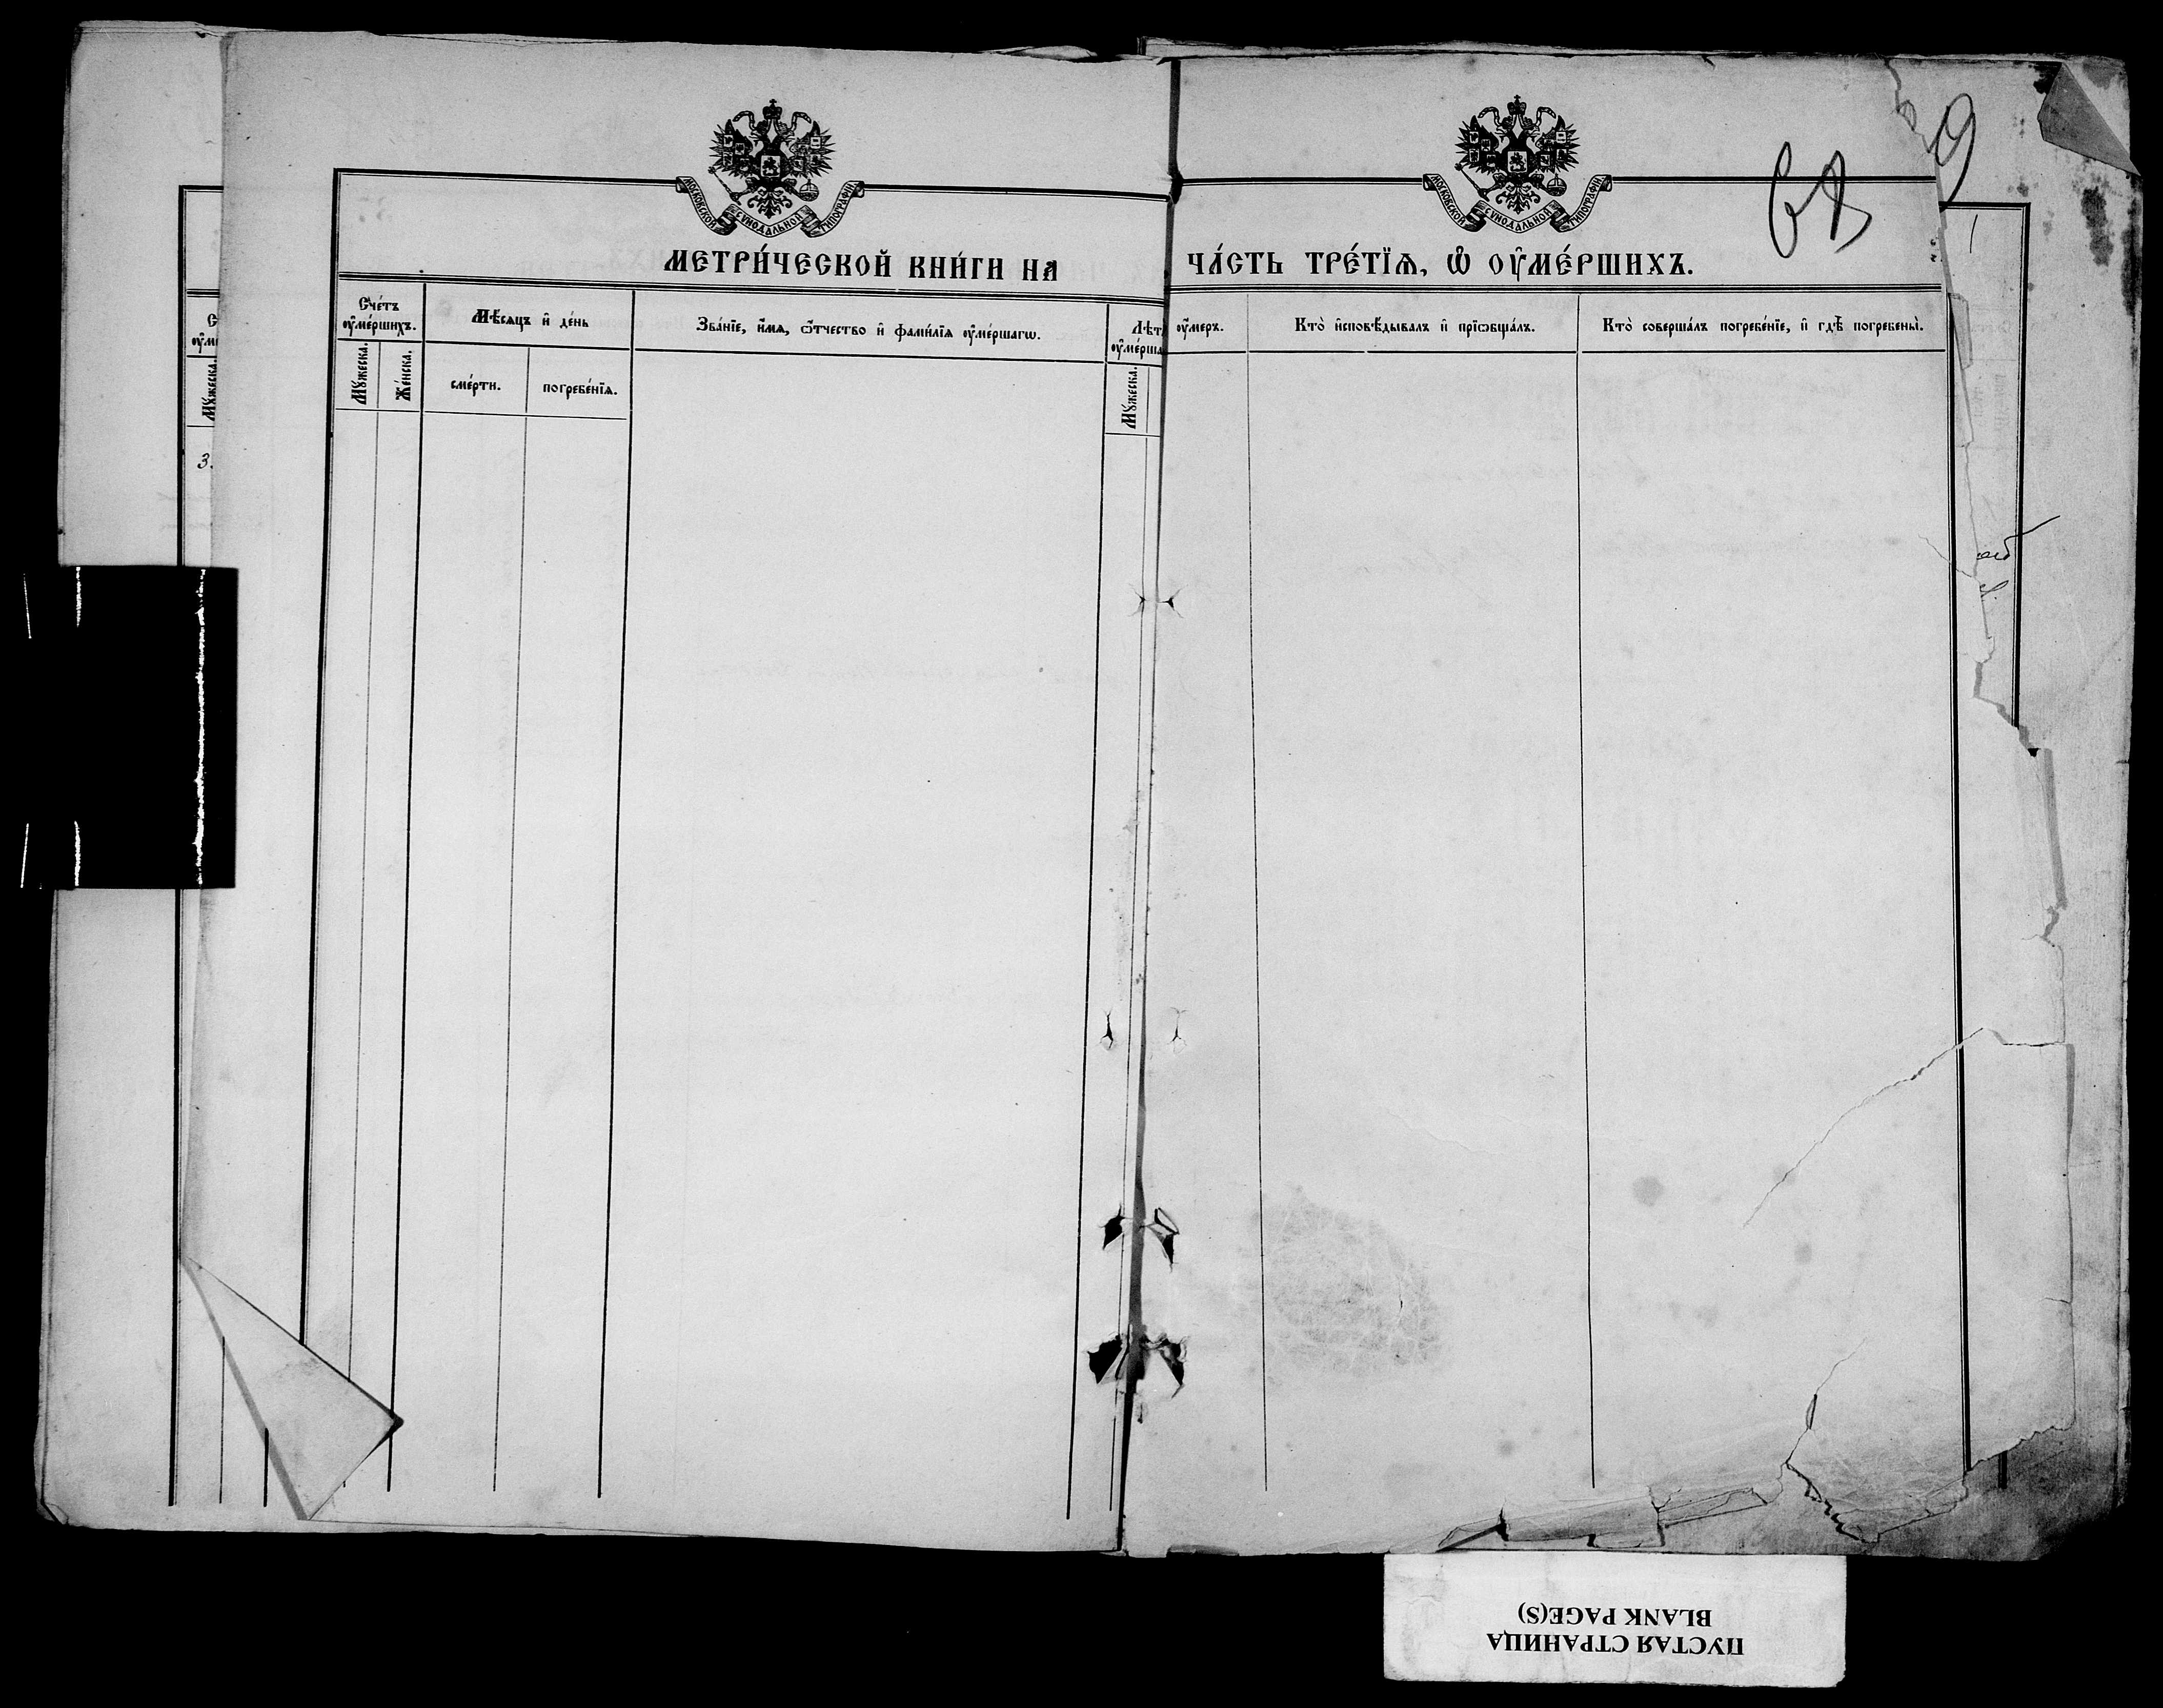 МОСКОВСКОЙ СѴНОДАЛЬНОЙ ТИПОГРАФІИ
МЕТРИ́ЧЕСКОЙ КНИ́ГИ НА
Сче́тъ ᲂу҆ме́ршихъ.
Мꙋ́жеска.
Же́нска.
Мѣ́сяцъ и҆ де́нь
сме́рти.
погребе́нїѧ.
Зва́нїе, и҆́мѧ, ѻ҆́тчество и҆ фами́лїѧ ᲂу҆ме́ршагѡ.
Лѣт
ᲂу҆ме́рша
Мꙋ́жеска.
3.
МОСКОВСКОЙ СѴНОДАЛЬНОЙ ТИПОГРАФІИ
ЧА́СТЬ ТРЕ́ТЇѦ, Ѡ҆ ОУ҆МЕ́РШИХЪ.
ᲂу҆меръ.
Кто̀ и҆сповѣ́дывалъ и҆ прїѡбща́лъ.
Кто̀ соверша́лъ погребе́нїе, и҆ гдѣ̀ погребены̀.
9
ПУСТАЯ СТРАНИЦА
BLANK PAGE(S)